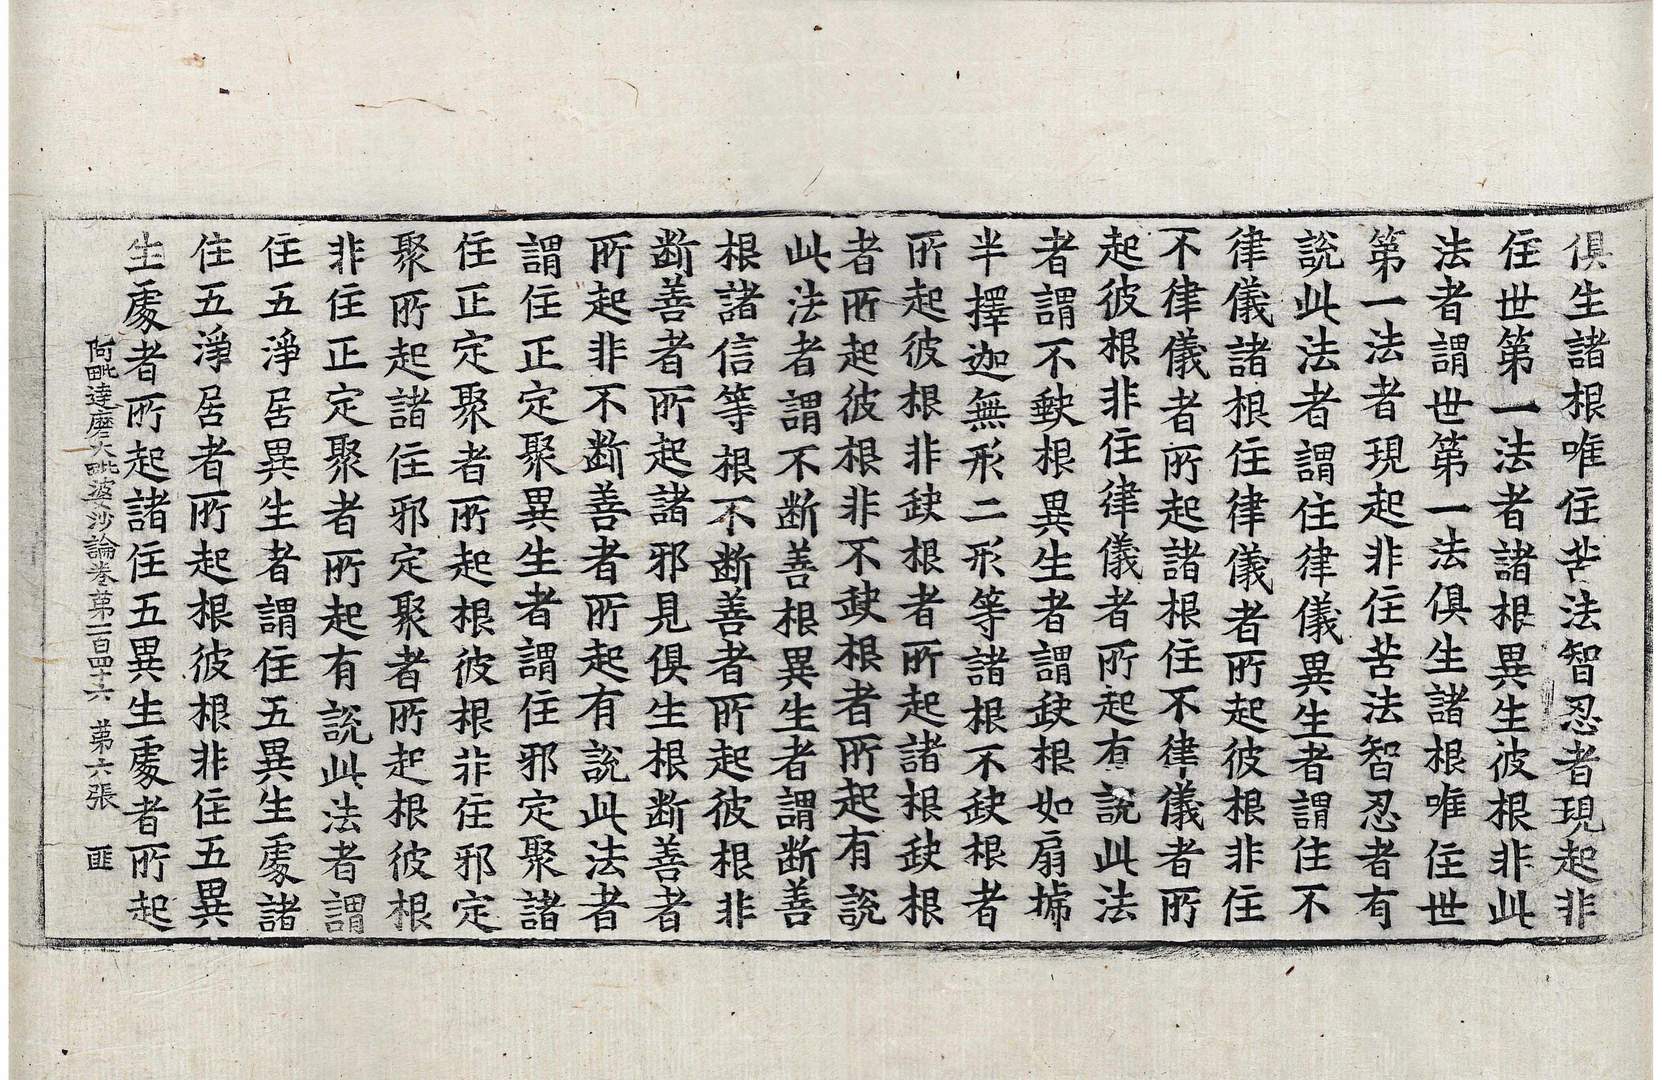 俱生諸根唯住苦法智忍者現起非
住世第一法者諸根異生彼根非此
法者謂世第一法俱生諸根唯住世
第一法者現起非住苦法智忍者有
說此法者謂住律儀異生者謂住不
律儀諸根住律儀者所起彼根非住
不律儀者所起諸根住不律儀者所
起彼根非住律儀者所起有說此法
者謂不缺根異生者謂缺根如扇搋
半擇迦無形二形等諸根不缺根者
所起彼根非缺根者所起諸根缺根
者所起彼根非不缺根者所起有說
此法者謂不斷善根異生者謂斷善
根諸信等根不斷善者所起彼根非
斷善者所起諸邪見俱生根斷善者
所起非不斷善者所起有說此法者
謂住正定聚異生者謂住邪定聚諸
住正定聚者所起根彼根非住邪定
聚所起諸住邪定聚者所起根彼根
非住正定聚者所起有說此法者謂
住五淨居異生者謂住五異生處諸
住五淨居者所起根彼根非住五異
生處者所起諸住五異生處者所起
阿毗達磨大毗婆沙論卷第一百四十六 第六張 匪